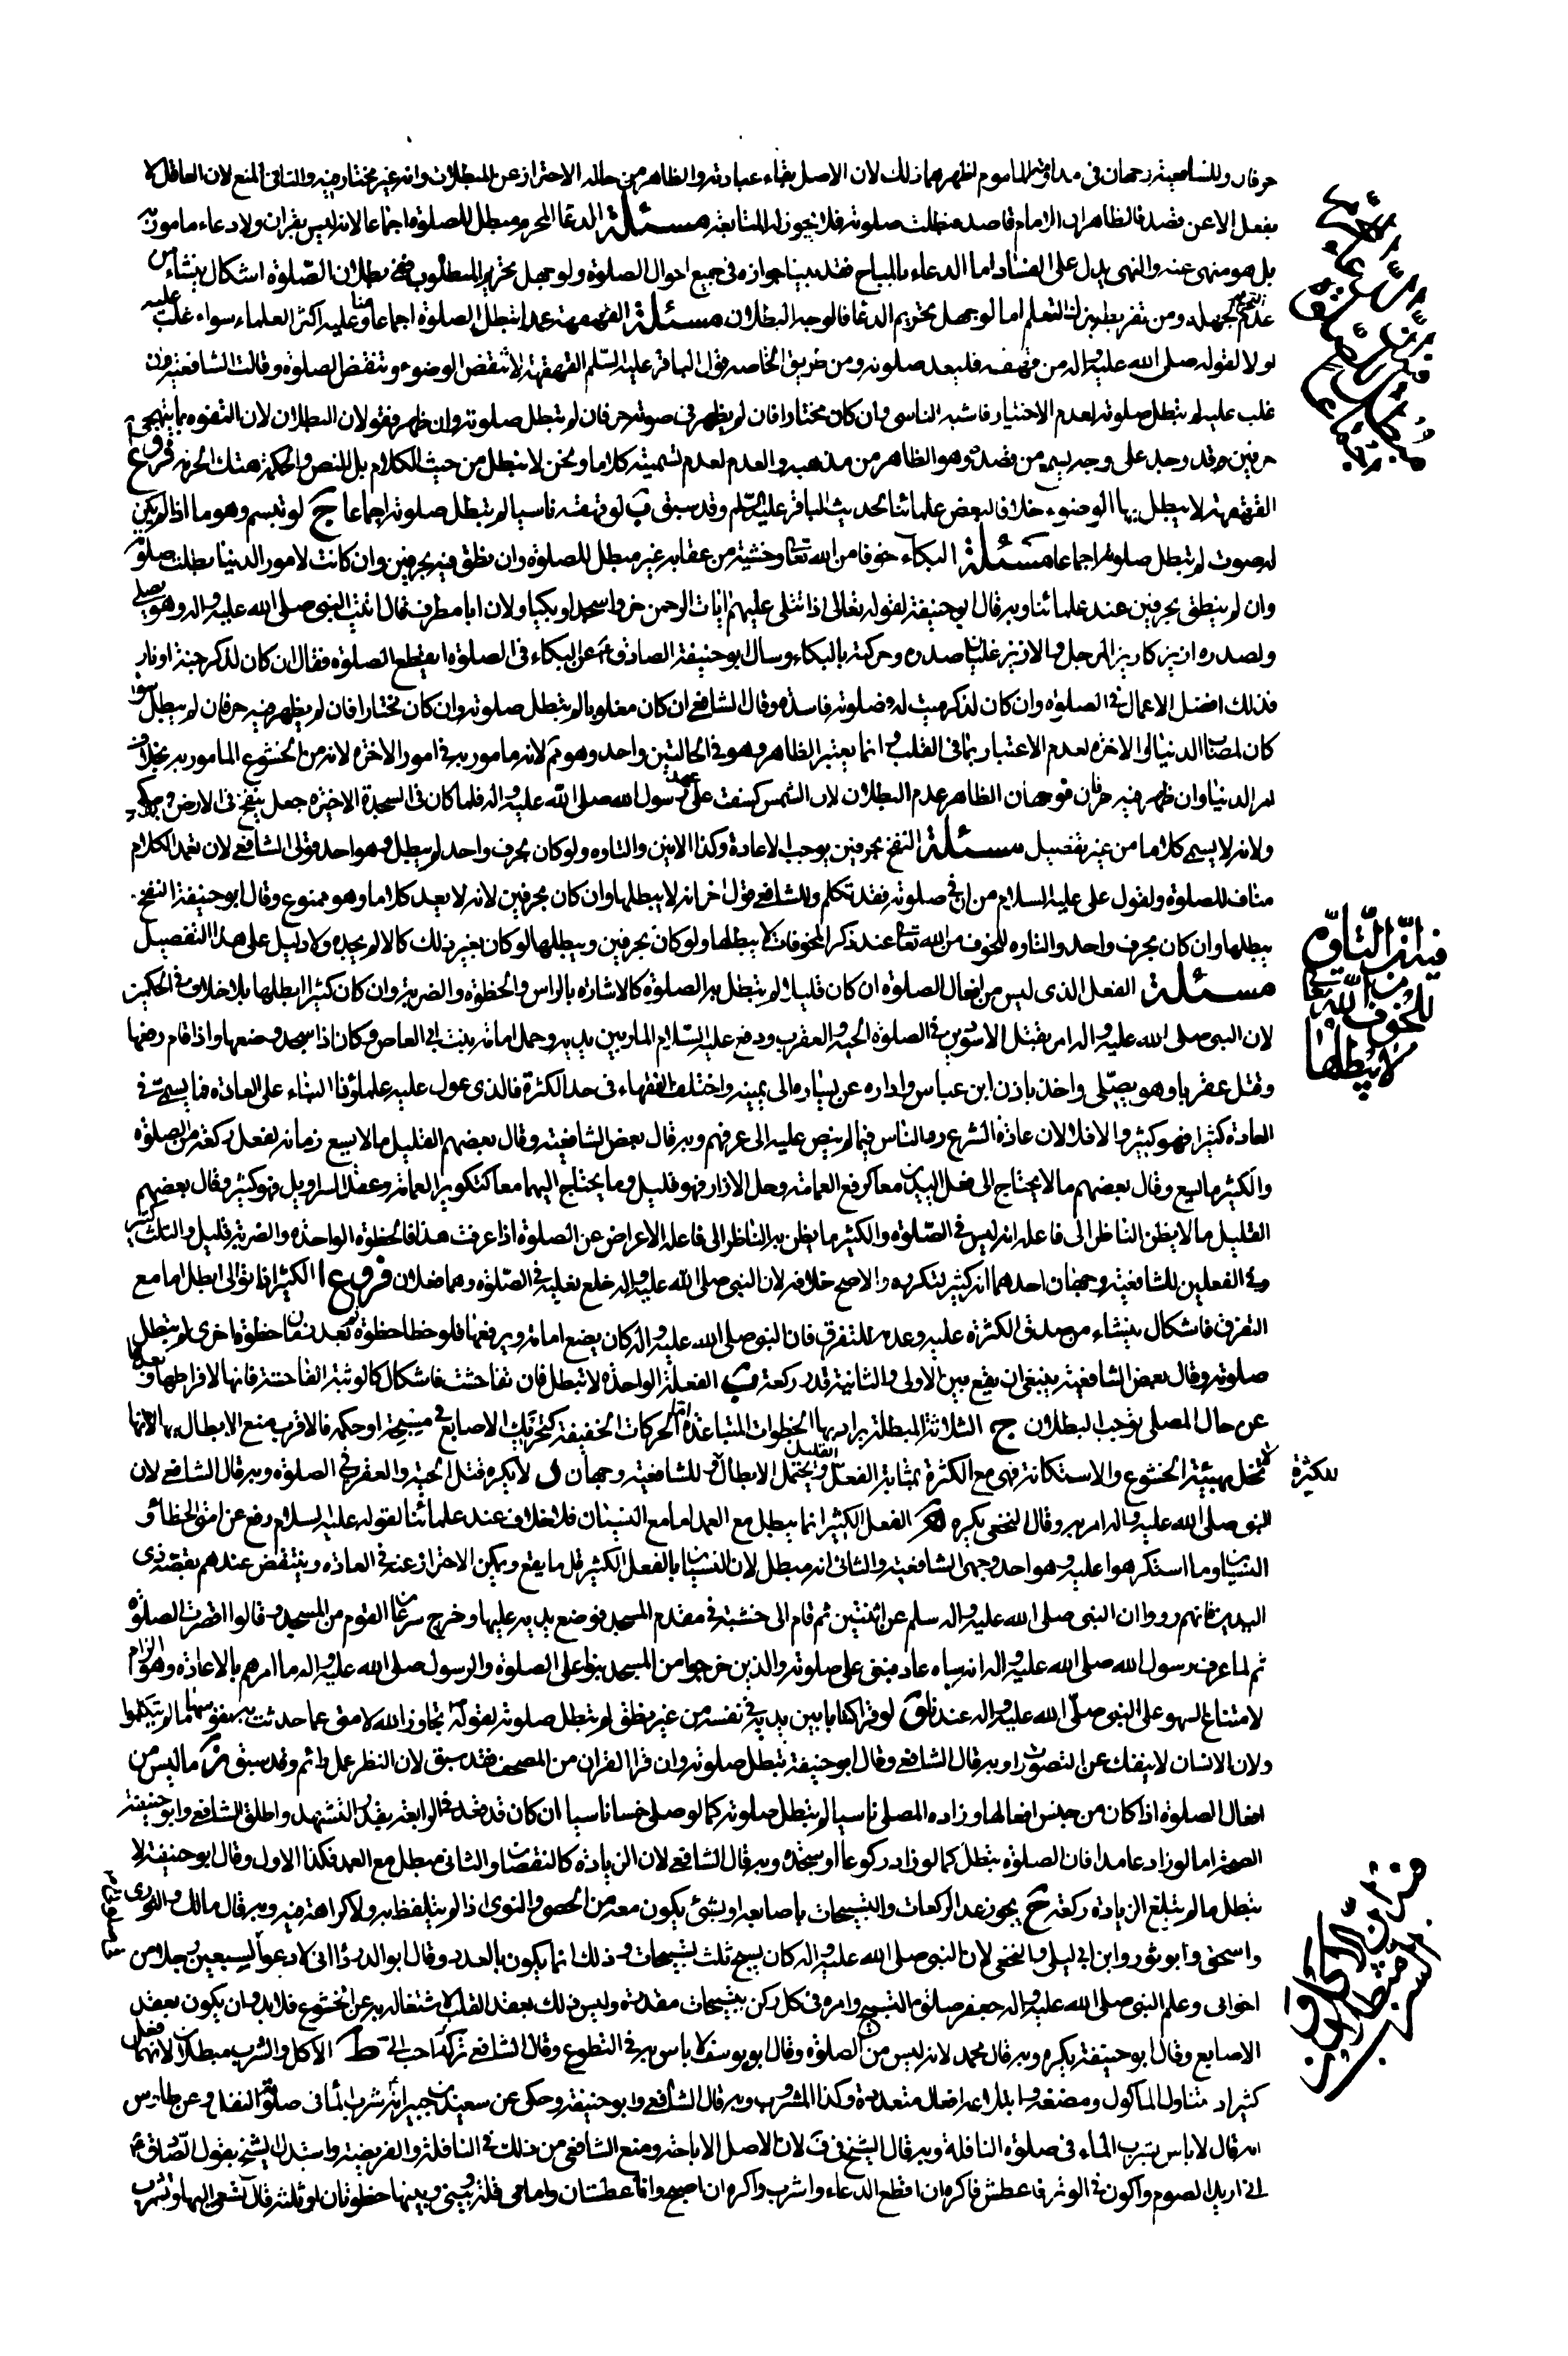 حرفان وللشافعية وجهان في مداومة المأموم لظهرهما ذلك لان الاصل بقاء عبادته والظاهر من حاله الاحتراز عن المبطلات وانه غير مختار فيه والثاني المنع لان العاقل لا
يفعل الا عن قصد فالظاهر ان الامام قاصد فبطلت صلوته فلا يجوز له المتابعة مسئلة الدعا المحرم مبطل للصلوة اجماعا لانه ليس بقران ولا دعاء مأمور به
بل هو منهى عنه والنهى يدل على الفساد اما الدعاء بالمباح فقد بينا جوازه في جميع احوال الصلوة ولو جهل تحريم المطلوب ففي بطلان الصلوة اشكال ينشاء من
عدم التحريم لجهله ومن تفريطه بترك التعلم اما لو جهل تحريم الدعا فالوجه البطلان مسئلة القهقهة عمدا تبطل الصلوة اجماعا منا وعليه اكثر العلماء سواء غلب عليه
لو لا لقوله صلى الله عليه واله من قهقه فليعد صلوته ومن طريق الخاصه قول الباقر عليه السلم القهقهة لا تنقض الوضوء وتنقض الصلوة وقالت الشافعية ان
غلب عليه لم يبطل صلوته لعدم الاختيار فاشبه الناسى وان كان مختارا فان لم يظهر في صوته حرفان لم تبطل صلوته وان ظهر فقولان البطلان لان التفوه بما يتهجى
حرفين وقد وجد على وجه يسمع من قصده وهو الظاهر من مذهبه والعدم لعدم تسميته كلاما ونحن لا نبطل من حيث الكلام بل للنص والحكمة هتك الحرمة فروع ا
القهقهة لا يبطل بها الوضوء خلافا لبعض علمائنا لحديث الباقر عليه السلم وقد سبق ب لو قهقه ناسيا لم تبطل صلوته اجماعا ج لو تبسم وهو ما اذا لم يكن
له صوت لم تبطل صلوته اجماعا مسئلة البكاء خوفا من الله تعا وخشية من عقابه غير مبطل للصلوة وان نطق فيه بحرفين وان كانت لامور الدنيا بطلت صلوته
وان لم ينطق بحرفين عند علمائنا وبه قال ابو حنيفة لقوله تعالى اذا تتلى عليهم ايات الرحمن خروا سجدا وبكيا ولان ابا مطرف قال اتيت النبي صلى الله عليه واله وهو يصلي
ولصدره ازيز كازيز المرجل والازيز غليان صدره وحركته بالبكاء وسال ابو حنيفة الصادق ع عن البكاء في الصلوة ايقطع الصلوة فقال ان كان لذكر جنة او نار
فذلك افضل الاعمال في الصلوة وان كان لذكر ميت له فصلوته فاسدة وقال الشافعي ان كان مغلوبا لم تبطل صلوته وان كان مختارا فان لم يظهر فيه حرفان لم يبطل سواء
كان لمصاب الدنيا او الاخرة لعدم الاعتبار بما في القلب وانما يعتبر الظاهر وهو في الحالتين واحد وهو تم لانه مامور به في امور الاخرة لانه من الخشوع المامور به بخلاف
امر الدنيا وان ظهر فيه حرفان فوجهان الظاهر عدم البطلان لان الشمس كسفت على عهد رسول الله صلى الله عليه واله فلما كان في السجدة الاخيرة جعل ينفخ في الارض ويبكي
ولانه لا يسمى كلاما من غير تفصيل مسئلة النفخ بحرفين يوجب الاعادة وكذا الانين والتاوه ولو كان بحرف واحد لم يبطل وهو احد قولى الشافعي لان تعمد الكلام
مناف للصلوة ولقول على عليه السلام من ان في صلوته فقد تكلم وللشافعي قول اخر انه لا يبطلها وان كان بحرفين لانه لا يعد كلاما وهو ممنوع وقال ابو حنيفة النفخ
يبطلها وان كان بحرف واحد والتاوه للخوف من الله تعا عند ذكر المخوفات لا يبطلها ولو كان بحرفين ويبطلها لو كان بغير ذلك كالالم يجده ولا دليل على هذا التفصيل
مسئلة الفعل الذى ليس من افعال الصلوة ان كان قليلا لم يتبطل به الصلوة كالاشارة بالراس والخطوة والضربة وان كان كثيرا ابطلها بلا خلاف في الحكمين
لان النبى صلى الله عليه واله امر بقتل الاسودين في الصلوة الحية والعقرب ودفع عليه السلام المار بين يديه وحمل امامة بنت ابي العاص وكان اذا سجد وضعها واذا قام رفعها
وقتل عقربا وهو يصلى واخذ باذن ابن عباس واداره عن يساره الى يمينه واختلف الفقهاء في حد الكثرة فالذى عول عليه علماؤنا البناء على العادة فما يسمى في
العادة كثيرا فهو كثير والا فلا لان عادة الشرع رد الناس فيما لم ينص عليه الى عرفهم وبه قال بعض الشافعية وقال بعضهم القليل ما لا يسع زمانه لفعل ركعة من الصلوة
والكثير ما يسع وقال بعضهم ما لا يحتاج الى فعل اليدين معا كرفع العمامة وحل الازار فهو قليل وما يحتاج اليهما معا كتكوير العمامة وعقد السراويل فهو كثير وقال بعضهم
القليل ما لا يظن الناظر الى فاعله انه ليس في الصلوة والكثير ما يظن به الناظر الى فاعله الاعراض عن الصلوة اذا عرفت هذا فالخطوة الواحدة والضربة قليل والثلث كثير
وفي الفعلين للشافعية وجهان احدهما انه كثير لتكرره والاصح خلافه لان النبى صلى الله عليه واله خلع نعليه في الصلوة وهما فعلان فروع ا الكثير اذا توالى ابطل اما مع
التفرق فاشكال ينشاء من صدق الكثرة عليه وعدمه للتفرق فان النبى صلى الله عليه واله كان يضع امامة ويرفعها فلو خطا خطوة ثم بعد زمان خطوة اخرى لم يتبطل
صلوته وقال بعض الشافعية ينبغي ان يقع بين الاولى والثانية قدر ركعة ب الفعلة الواحدة لا تبطل فان تفاحشت فاشكال كالوثبة الفاحشة فانها لافراطها وبعدها
عن حال المصلى يوجب البطلان ج الثلاثة المبطلة يراد بها الخطوات المتباعدة اما الحركات الخفيفة كتحريك الاصابع في مسبحة او حكه فالاقرب منع الابطال بها لانها
لا تخل بهيئة الخشوع والاستكانة فهي مع الكثرة بمثابة الفعل القليل ويحتمل الابطال وللشافعية وجهان د لا يكره قتل الحية والعقرب في الصلوة وبه قال الشافعي لان
للكثرة
النبى صلى الله عليه واله امر به وقال النخعى يكره ه الفعل الكثير انما يبطل مع العمد اما مع النسيان فلا خلاف عند علمائنا لقوله عليه السلام رفع عن امتى الخطاء و
النسيان وما استكرهوا عليه وهو احد وجهى الشافعية والثانى انه مبطل لان النسيان بالفعل الكثير قل ما يقع ويمكن الاحتراز عنه في العادة وينتقض عندهم بقصة ذى
اليدين فانهم رووا ان النبى صلى الله عليه واله سلم عن اثنتين ثم قام الى خشبة في مقدم المسجد فوضع يديه عليها وخرج سرعان القوم من المسجد وقالوا اقصرت الصلوة
ثم لما عرف رسول الله صلى الله عليه واله انه ساه عاد فبنى على صلوته والذين خرجوا من المسجد بنوا على الصلوة والرسول صلى الله عليه واله ما امرهم بالاعادة وهو الزام
لامتناع السهو على النبى صلى الله عليه واله عندنا و لو قرا كتابا بين يديه في نفسه من غير نطق لم تبطل صلوته لقوله ع تجاوز الله لامتى عما حدثت به نفوسها ما لم يتكلموا
ولان الانسان لا ينفك عن التصورات وبه قال الشافعي وقال ابو حنيفة تبطل صلوته وان قرا القران من المصحف فقد سبق لان النظر عمل دائم وقد سبق ز ما ليس من
افعال الصلوة اذا كان من جنس افعالها وزاده المصلى ناسيا لم يتبطل صلوته كما لو صلى خمسا ناسيا ان كان قد قعد في الرابعة بقدر التشهد واطلق الشافعي وابو حنيفة
الصحة اما لو زاد عامدا فان الصلوة تبطل كما لو زاد ركوعا او سجدة وبه قال الشافعي لان الزيادة كالنقصان والثانى مبطل مع العمد فكذا الاول وقال ابو حنيفة لا
تبطل ما لم تبلغ الزيادة ركعة ح يجوز عد الركعات والتسبيحات باصابعه او بشئ يكون معه من الحصى والنوى اذا لم يتلفظ به ولا كراهة فيه وبه قال مالك والثورى
واسحق وابو ثور وابن ابي ليلى والنخعى لان النبى صلى الله عليه واله كان يسبح ثلث تسبيحات وذلك انما يكون بالعدد وقال ابو الدرداء انى لادعو لسبعين رجلا من
اخوانى وعلم النبى صلى الله عليه واله جعفر صلوة التسبيح وامره في كل ركن بتسبيحات مقدرة وليس ذلك بعقد القلب لاشتغاله به عن الخشوع فلابد وان يكون بعقد
الاصابع وقال ابو حنيفة يكره وبه قال محمد لانه ليس من الصلوة وقال ابو يوسف لا باس به في التطوع وقال الشافعي تركه احب الى ط الاكل والشرب مبطلان لانهما فعل
كثير اذ تناول الماكول ومضغه وابتلاعه افعال متعددة وكذا المشروب وبه قال الشافعي وابو حنيفة وحكى عن سعيد بن جبير انه شرب الماء في صلوة النفل وعن طاوس
انه قال لا باس بشرب الماء في صلوة النافلة وبه قال الشيخ في ف لان الاصل الاباحة ومنع الشافعي من ذلك في النافلة والفريضة واستدل الشيخ بقول الصادق ع
انى اريد الصوم واكون في الوتر فاعطش فاكره ان اقطع الدعاء واشرب واكره ان اصبح وانا عطشان وامامى قلة بينى وبينها خطوتان او ثلثة قال تسعى اليها وتشرب
فيه ان التاوه
للخوف من الله تعا
لا يبطلها
فيه ان الاكل و
الشرب مبطلان